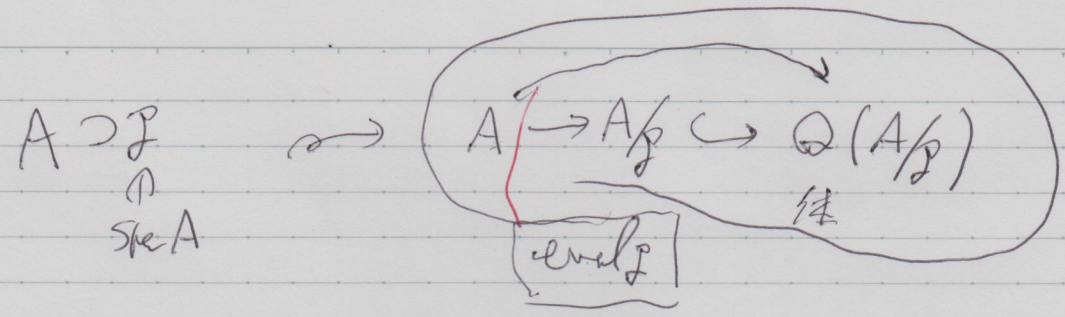 A ⊃ 𝔭 ⇝ A → A/𝔭 ↪ Q(A/𝔭)
∈
Spec A
体
eval𝔭